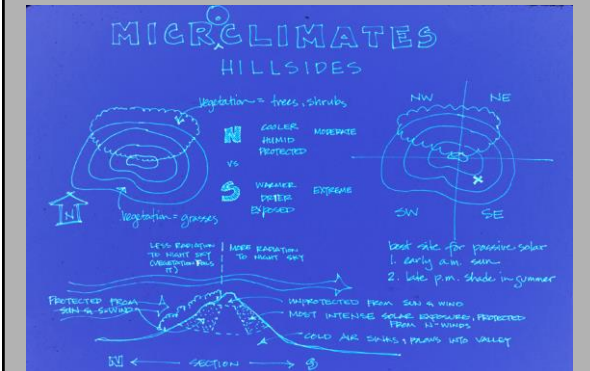 MICROCLIMATES
HILLSIDES
vegetation = trees, shrubs
N COOLER MODERATE
HUMID
PROTECTED
VS
S WARMER EXTREME
DRIER
EXPOSED
N
vegetation = grasses
NW NE
SW SE
best site for passive solar
1. early a.m. sun
2. late p.m. shade in summer
LESS RADIATION
TO NIGHT SKY
(VEGETATION
IT)
MORE RADIATION
TO NIGHT SKY
PROTECTED FROM
SUN & WIND
UNPROTECTED FROM SUN & WIND
MOST INTENSE SOLAR EXPOSURE, PROTECTED
FROM N-WINDS
COLD AIR SINKS, FLOWS INTO VALLEY
N SECTION S